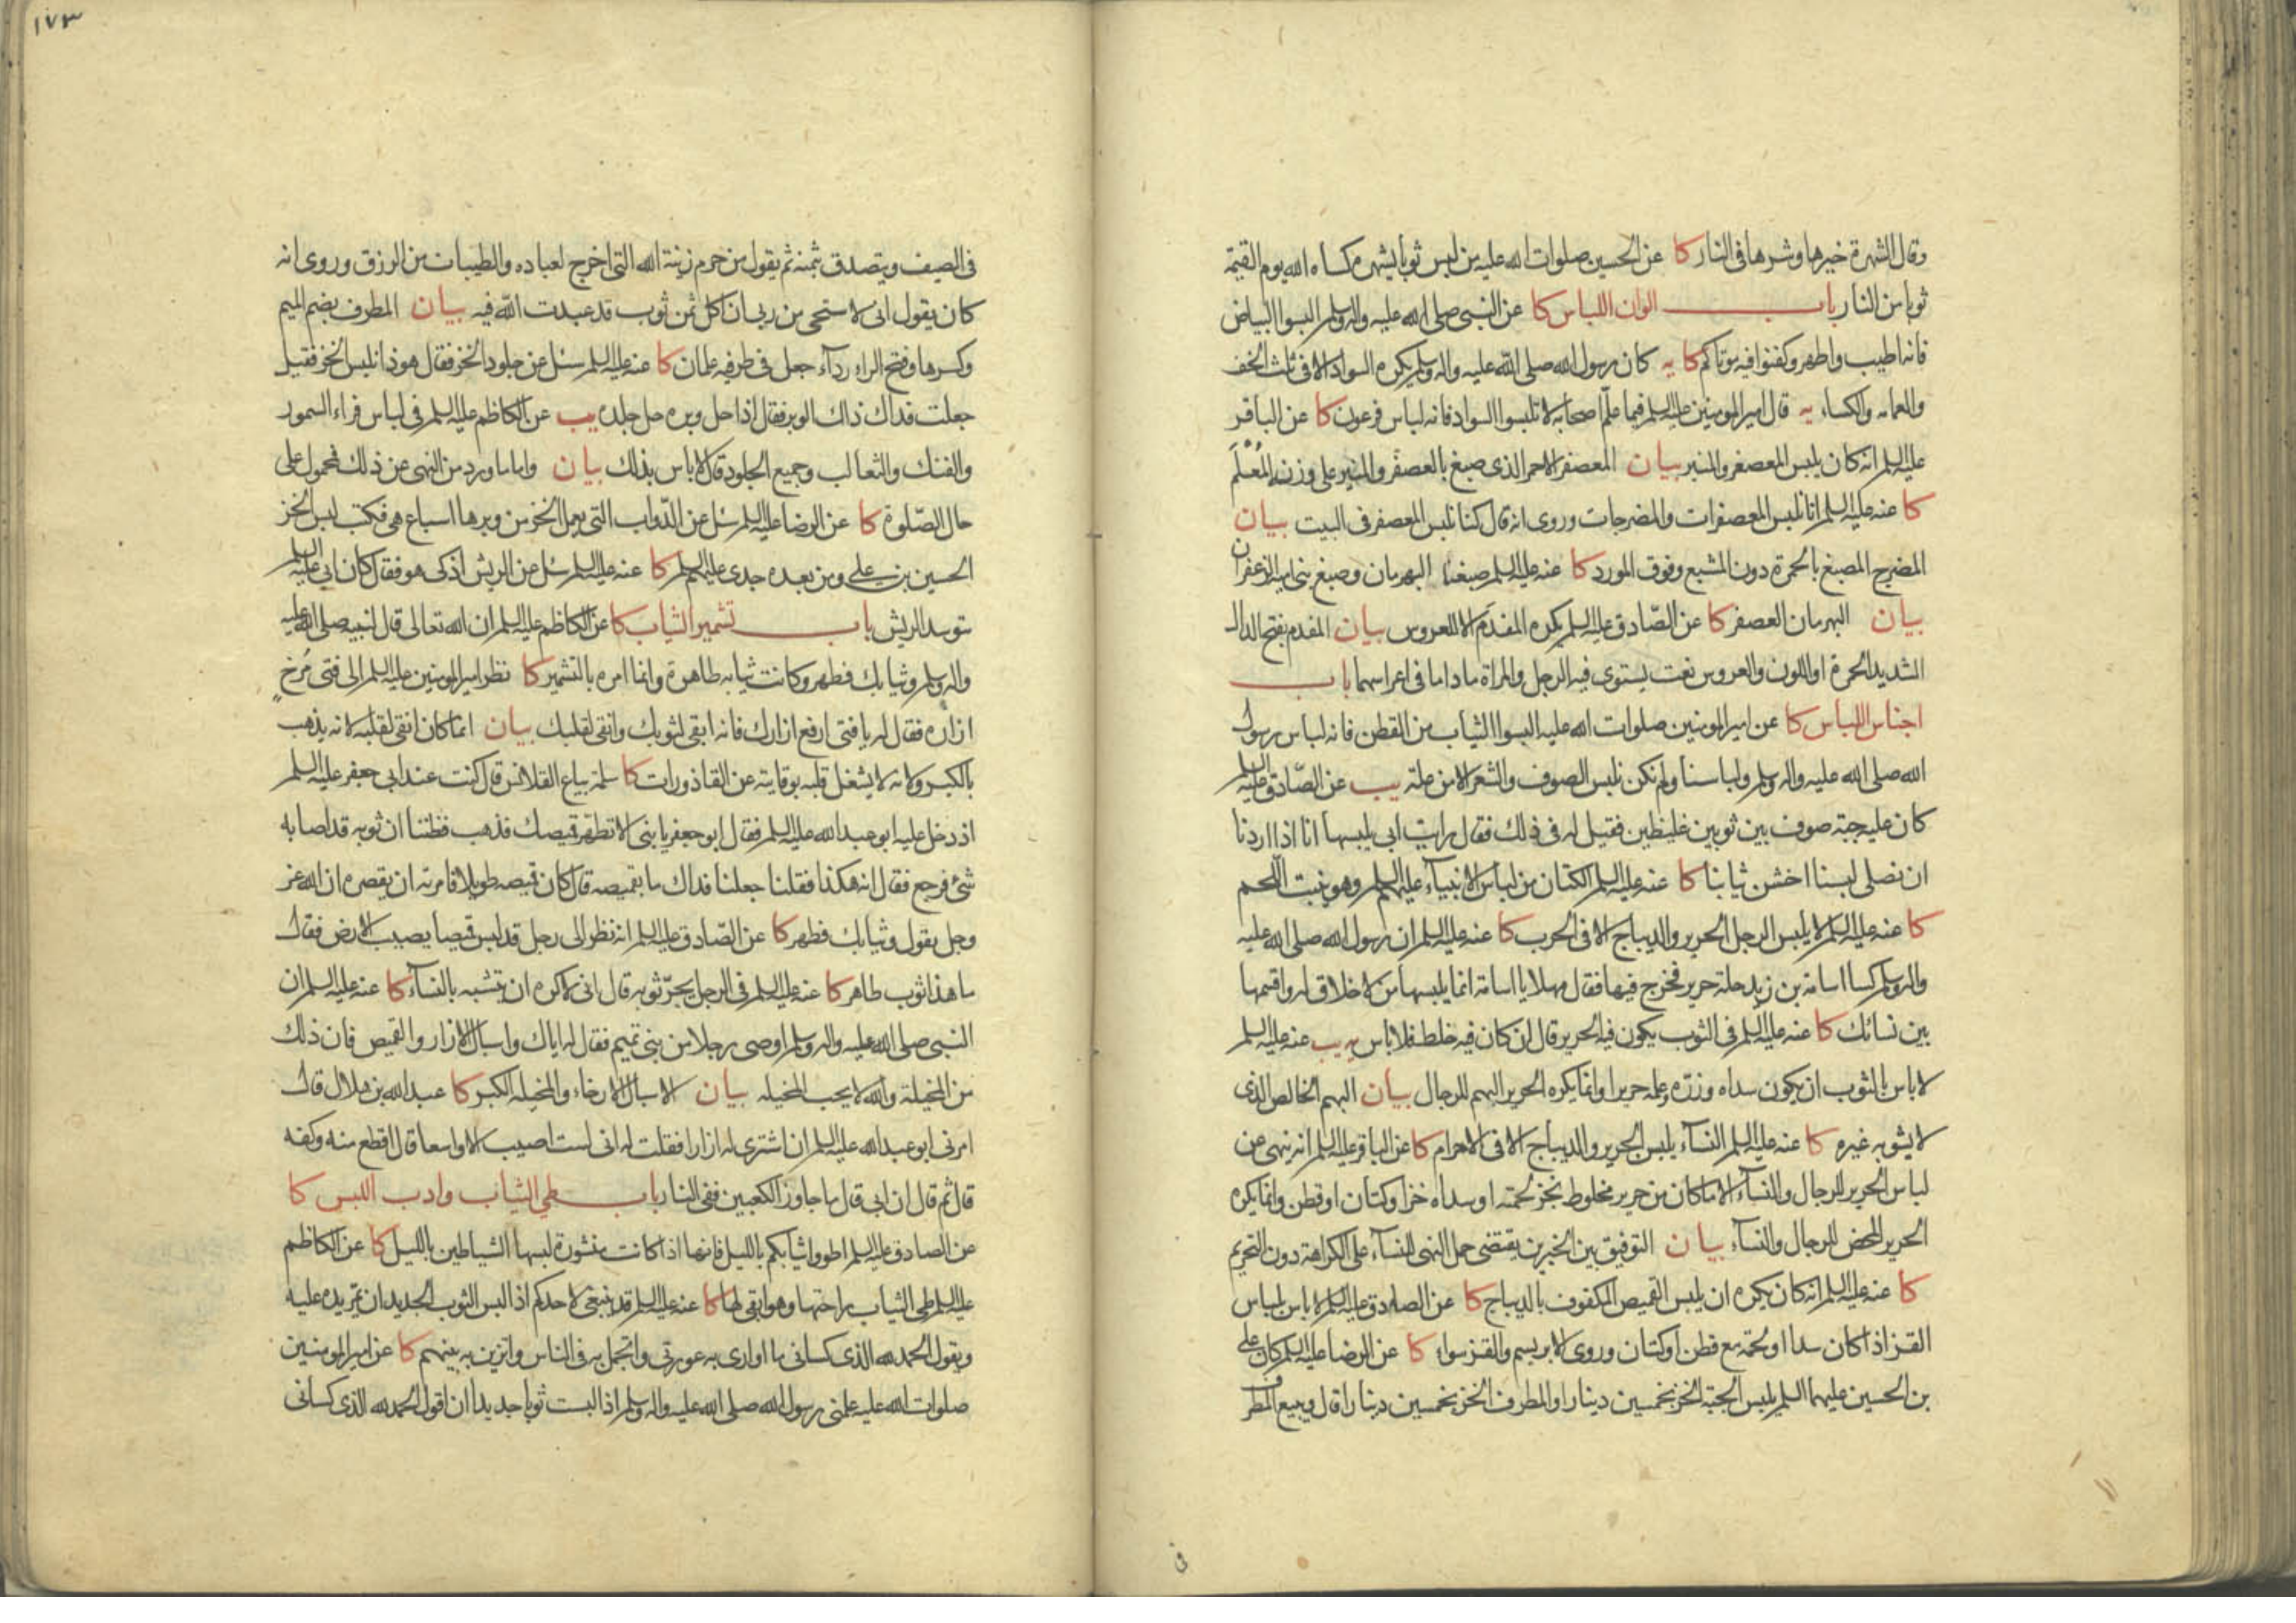 وقال الشهرة خيرها وشرها في النار كا عن الحسين صلوات الله عليه من لبس ثوبا يشهره كساه الله يوم القيمة
ثوبا من النار باب الوان اللباس كا عن النبي صلى الله عليه واله وسلم البسوا البياض
فانه اطيب واطهر وكفنوا فيه موتاكم كا يه كان رسول الله صلى الله عليه واله وسلم يكره السواد الا في ثلث الخف
والعمامه والكساء يه قال امير المومنين عليه السلم فيما علم اصحابه لا تلبسوا السواد فانه لباس فرعون كا عن الباقر
عليه السلم انه كان يلبس المعصفر والمنير بيان المعصفر الاحمر الذي صبغ بالعصفر والمنير على وزن المعلم
كا عنه عليه السلم انا نلبس المعصفرات والمضرجات وروى انه قال كنا نلبس المعصفر في البيت بيان
المضرج المصبغ بالحمرة دون المشبع وفوق المورد كا عنه عليه السلم صبغنا البهرمان وصبغ بني اميه الزعفران
بيان البهرمان العصفر كا عن الصادق عليه السلم يكره المفدم الا للعروس بيان المفدم بفتح الدال
الشديد الحمرة او اللون والعروس نعت يستوى فيه الرجل والمراة ما داما في اعراسهما باب
اجناس اللباس كا عن امير المومنين صلوات الله عليه البسوا الثياب من القطن فانه لباس رسول
الله صلى الله عليه واله وسلم ولباسنا ولم نكن نلبس الصوف والشعر الا من علة يب عن الصادق عليه السلم
كان عليه جبة صوف بين ثوبين غليظين فقيل له في ذلك فقال رايت ابي يلبسها انا اذا اردنا
ان نصلى لبسنا اخشن ثيابنا كا عنه عليه السلم الكتان من لباس الانبياء عليهم السلم وهو ينبت اللحم
كا عنه عليه السلم لا يلبس الرجل الحرير والديباج الا في الحرب كا عنه عليه السلم ان رسول الله صلى الله عليه
واله وسلم كسا اسامة بن زيد حلة حرير فخرج فيها فقال مهلا يا اسامة انما يلبسها من لا خلاق له واقسمها
بين نسائك كا عنه عليه السلم في الثوب يكون فيه الحرير قال ان كان فيه خلط فلا باس يه يب عنه عليه السلم
لا باس بالثوب ان يكون سداه وزره وعلمه حريرا وانما يكره الحرير البهم للرجال بيان البهم الخالص الذي
لا يشوبه غيره كا عنه عليه السلم النساء يلبس الحرير والديباج الا في الاحرام كا عن الباقر عليه السلم انه نهى عن
لباس الحرير للرجال والنساء الا ما كان من حرير مخلوط بخز لحمته او سداه خز او كتان او قطن وانما يكره
الحرير المحض للرجال والنساء بيان التوفيق بين الخبرين يقتضى حمل النهى للنساء على الكراهة دون التحريم
كا عنه عليه السلم انه كان يكره ان يلبس القميص المكفوف بالديباج كا عن الصادق عليه السلم لا باس بلباس
القز اذا كان سدا او لحمته مع قطن او كتان وروى الابريسم والقز سواء كا عن الرضا عليه السلم كان على
بن الحسين عليهما السلم يلبس الجبة الخز بخمسين دينارا والمطرف الخز بخمسين دينارا قال ويبيع المطرف
١٧٣
في الصيف ويتصدق بثمنه ثم يقول من حرم زينة الله التي اخرج لعباده والطيبات من الرزق وروى انه
كان يقول انى لاستحى من ربى ان اكل ثمن ثوب قد عبدت الله فيه بيان المطرف بضم الميم
وكسرها وفتح الراء رداء جعل في طرفيه علمان كا عنه عليه السلم سئل عن جلود الخز فقال هوذا نلبس الخز فقيل
جعلت فداك ذاك الوبر فقال اذا حل وبره حل جلده يب عن الكاظم عليه السلم في لباس فراء السمور
والفنك والثعالب وجميع الجلود قال لا باس بذلك بيان واما ما ورد من النهى عن ذلك فمحمول على
حال الصلوة كا عن الرضا عليه السلم سئل عن الدواب التي يعمل الخز من وبرها اسباع هى فكتب لبس الخز
الحسين بن على ومن بعده جدى عليهم السلم كا عنه عليه السلم سئل عن الريش اذكى هو فقال كان ابى عليه السلم
يتوسد الريش باب تشمير الثياب كا عن الكاظم عليه السلم ان الله تعالى قال لنبيه صلى الله عليه
واله وسلم وثيابك فطهر وكانت ثيابه طاهرة وانما امره بالتشمير كا نظر امير المومنين عليه السلم الى فتى مرخ
ازاره فقال له يا فتى ارفع ازارك فانه ابقى لثوبك وانقى لقلبك بيان انما كان انقى لقلبه لانه يذهب
بالكبر ولانه لا يشغل قلبه بوقايته عن القاذورات كا سلمة بياع القلانس قال كنت عند ابى جعفر عليه السلم
اذ دخل عليه ابو عبد الله عليه السلم فقال ابو جعفر يا بنى الا تطهر قميصك فذهب فظننا ان ثوبه قد اصابه
شئ فرجع فقال انه هكذا فقلنا جعلنا فداك ما بقميصه قال كان قميصه طويلا فامرته ان يقصره ان الله عز
وجل يقول وثيابك فطهر كا عن الصادق عليه السلم انه نظر الى رجل قد لبس قميصا يصيب الارض فقال
ما هذا ثوب طاهر كا عنه عليه السلم في الرجل يجر ثوبه قال انى لاكره ان يتشبه بالنساء كا عنه عليه السلم ان
النبي صلى الله عليه واله وسلم اوصى رجلا من بنى تميم فقال له اياك واسبال الازار والقميص فان ذلك
من المخيلة والله لا يحب المخيله بيان الاسبال الارخاء والمخيله الكبر كا عبد الله بن هلال قال
امرنى ابو عبد الله عليه السلم ان اشترى له ازارا فقلت له انى لست اصيب الا واسعا قال اقطع منه وكفه
قال ثم قال ان ابى قال ما جاوز الكعبين ففى النار باب طى الثياب وادب اللبس كا
عن الصادق عليه السلم اطووا ثيابكم بالليل فانها اذا كانت منشورة لبسها الشياطين بالليل كا عن الكاظم
عليه السلم طى الثياب راحتها وهو ابقى لها كا عنه عليه السلم قد ينبغى لاحدكم اذا لبس الثوب الجديد ان يمر يده عليه
ويقول الحمد لله الذي كسانى ما اوارى به عورتى واتجمل به في الناس واتزين به بينهم كا عن امير المومنين
صلوات الله عليه علمنى رسول الله صلى الله عليه واله وسلم اذا لبست ثوبا جديدا ان اقول الحمد لله الذي كسانى